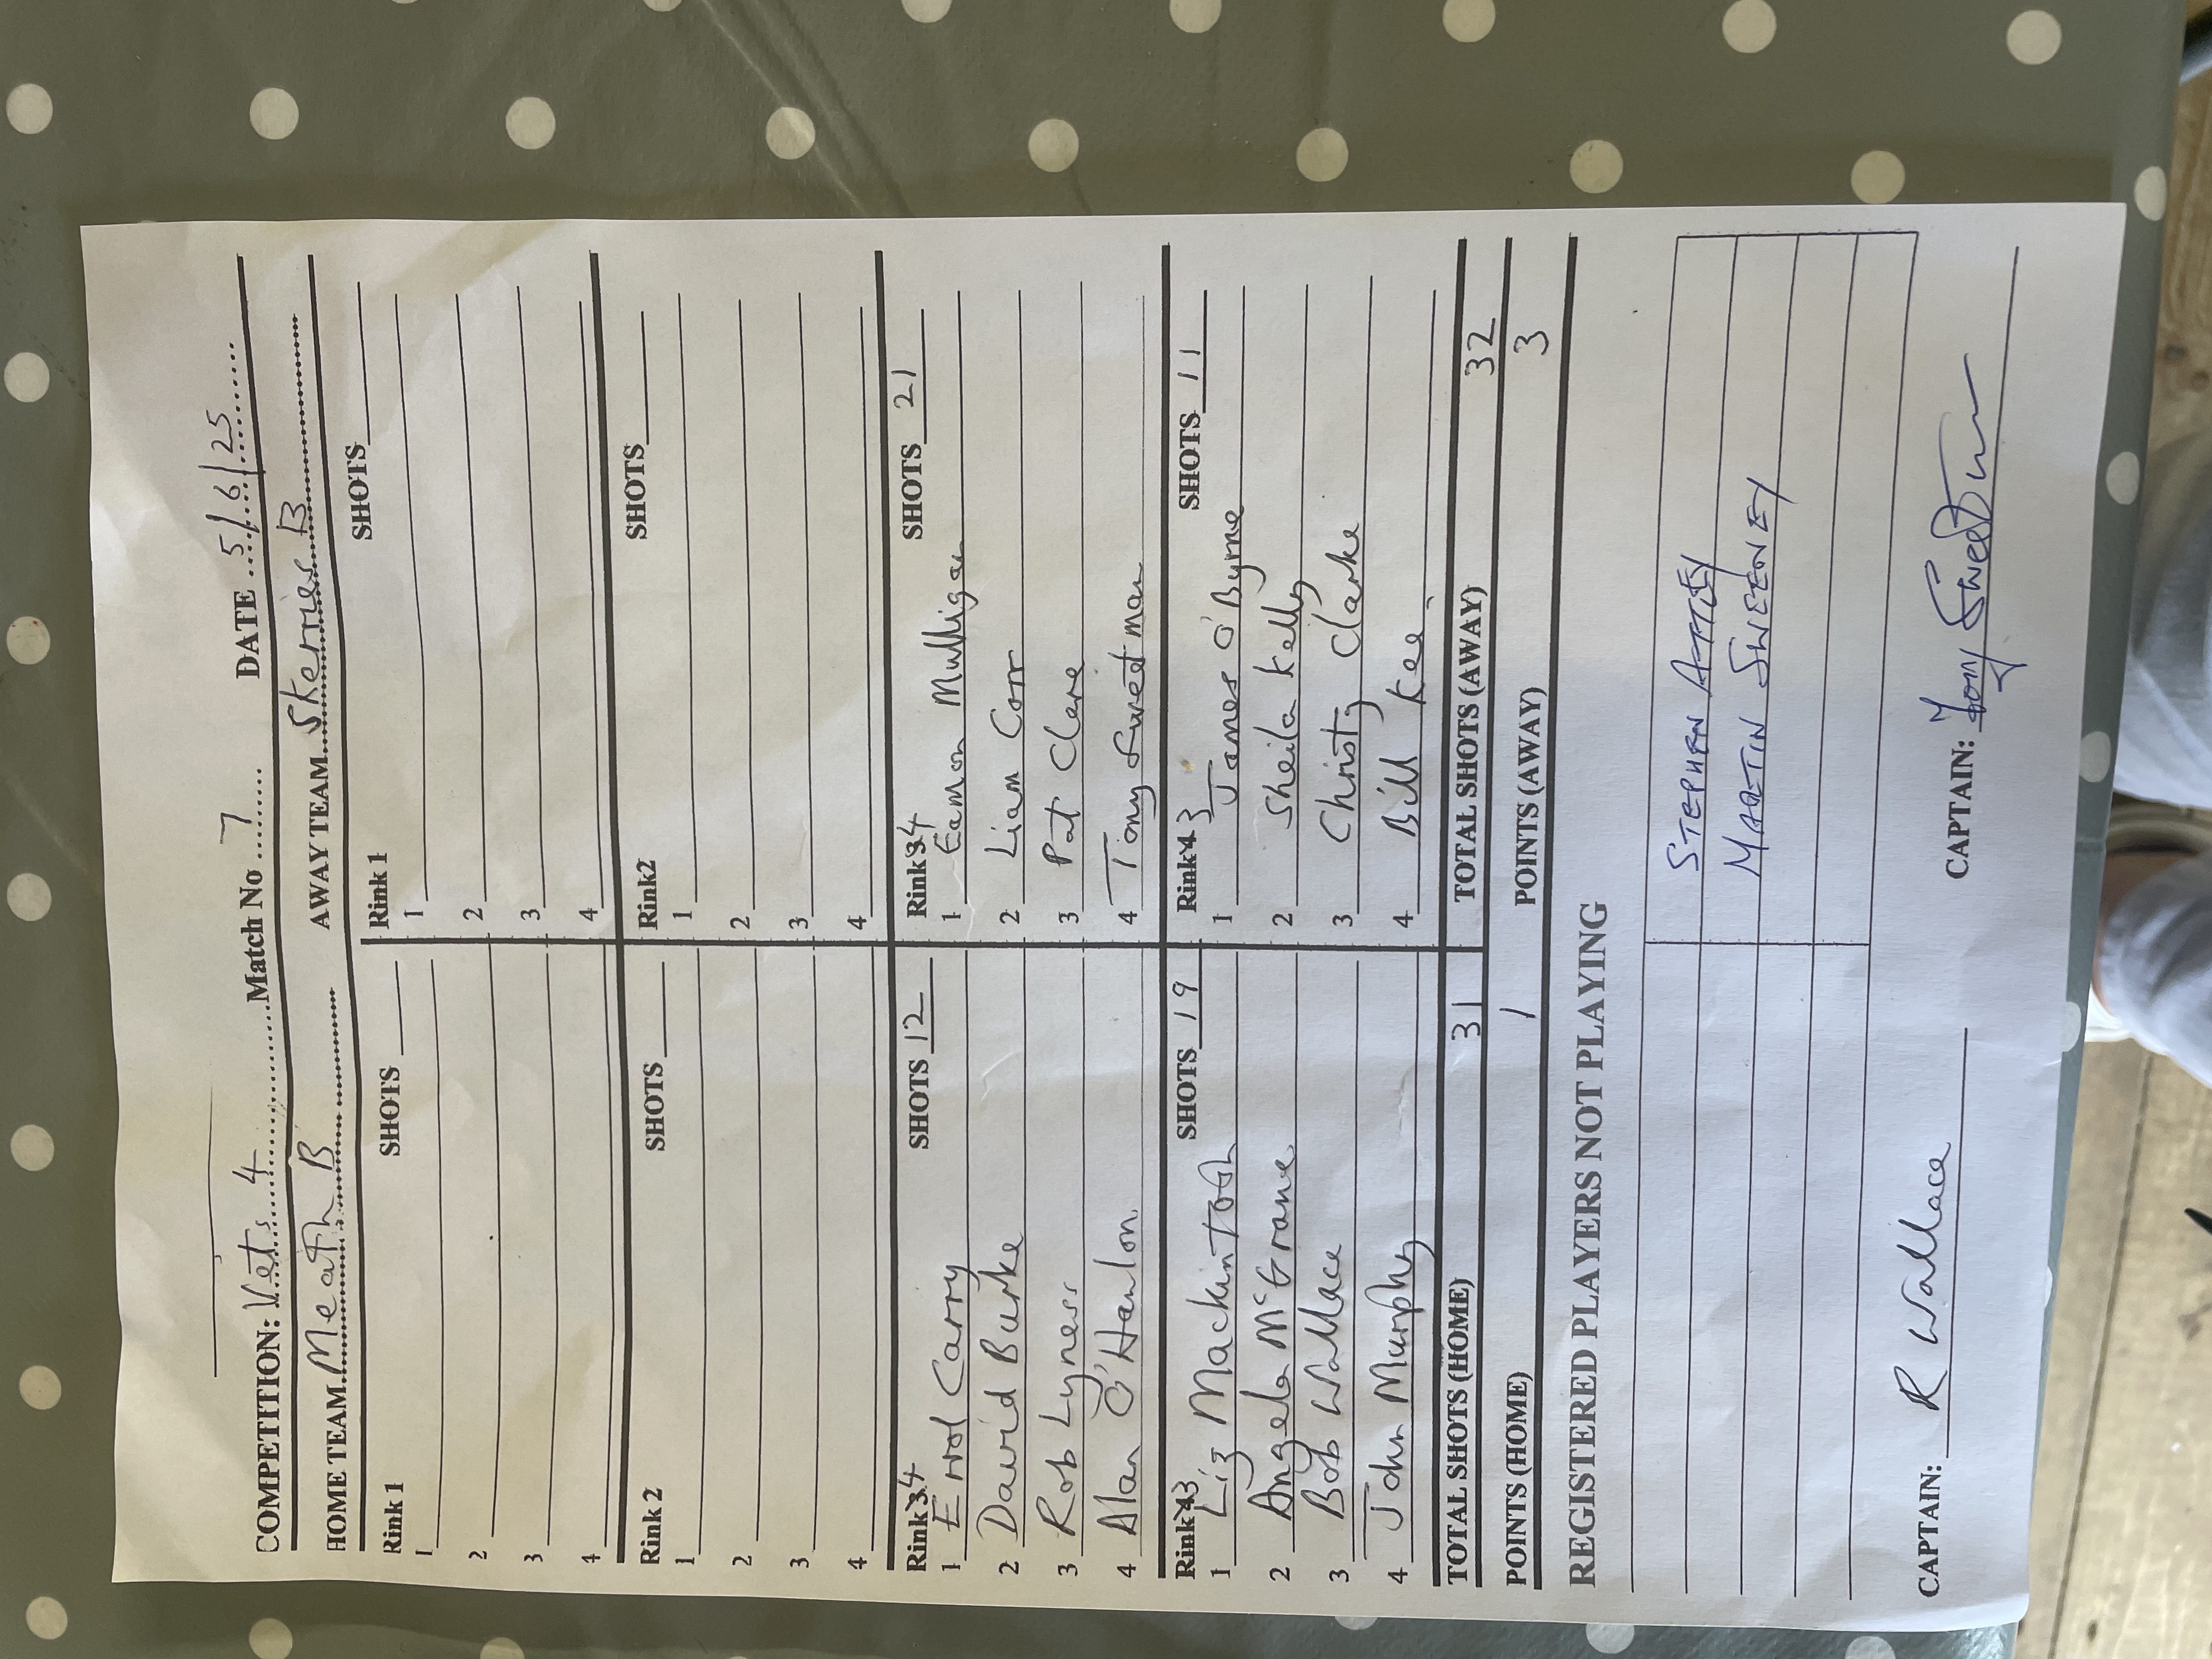 COMPETITION: Vets 4 Match No 7 DATE 5/6/25
HOME TEAM Meath B AWAY TEAM Skerries B
Rink 1 SHOTS Rink 1 SHOTS
1 1
2 2
3 3
4 4
Rink 2 SHOTS Rink2 SHOTS
1 1
2 2
3 3
4 4
Rink 3 4 SHOTS 12 Rink 3 4 SHOTS 21
1 Errol Carry 1 Eamon Mulligan
2 David Burke 2 Liam Corr
3 Rob Lyness 3 Pat Clare
4 Alan O'Hanlon 4 Tony Sweetman
Rink 4 3 SHOTS 19 Rink 4 3 SHOTS 11
1 Liz Mackintosh 1 James O'Byrne
2 Angela McGrane 2 Sheila Kelly
3 Bob Wallace 3 Christy Clarke
4 John Murphy 4 Bill Kee
TOTAL SHOTS (HOME) 31 TOTAL SHOTS (AWAY) 32
POINTS (HOME) 1 POINTS (AWAY) 3
REGISTERED PLAYERS NOT PLAYING
STEPHEN ATTLEY
MARTIN SWEENEY
CAPTAIN: R Wallace CAPTAIN: Tony Sweetman